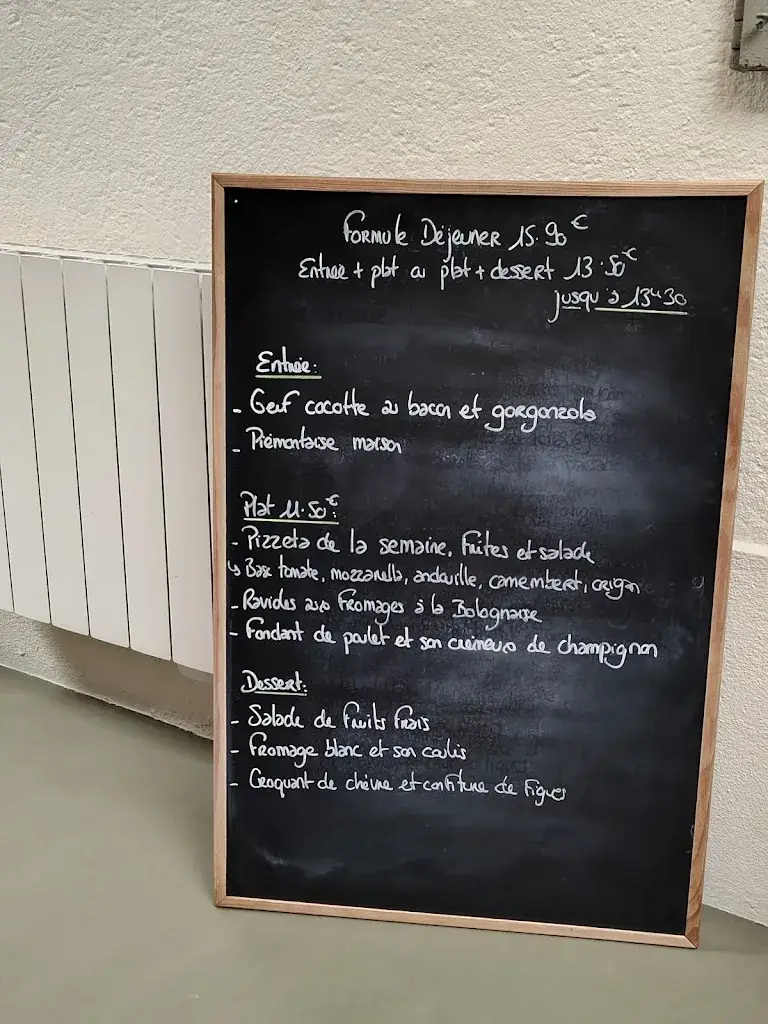 Formule Déjeuner 15.90€
Entrée + plat ou plat + dessert 13.50€
jusqu'à 13H30
Entrée:
- Oeuf cocotte au bacon et gorgonzola
- Piémontaise maison
Plat 11.50€:
- Pizzeta de la semaine, frites et salade
↳ Base tomate, mozzarella, andouille, camembert, origan
- Ravioles aux fromages à la Bolognaise
- Fondant de poulet et son crémeux de champignon
Dessert:
- Salade de fruits frais
- Fromage blanc et son coulis
- Croquant de chèvre et confiture de figues